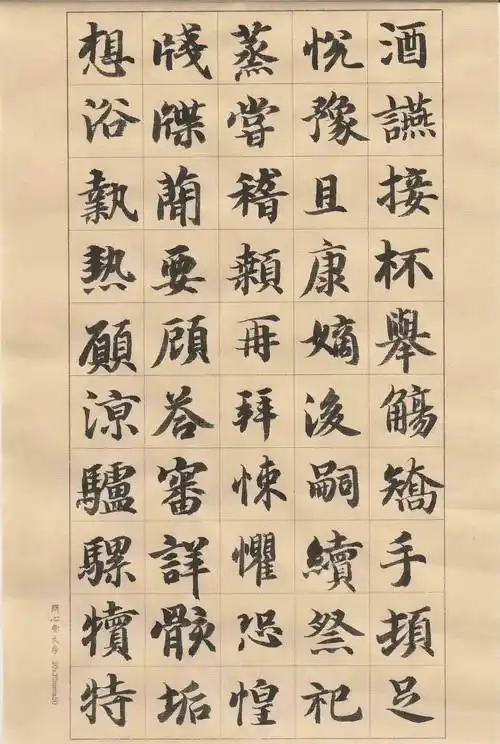 酒讌接杯舉觴矯手頓足
悅豫且康嫡後嗣續祭祀
蒸嘗稽顙再拜悚懼恐惶
牋牒蕳要顧答審詳骸垢
想浴執熱願涼驢騾犢特